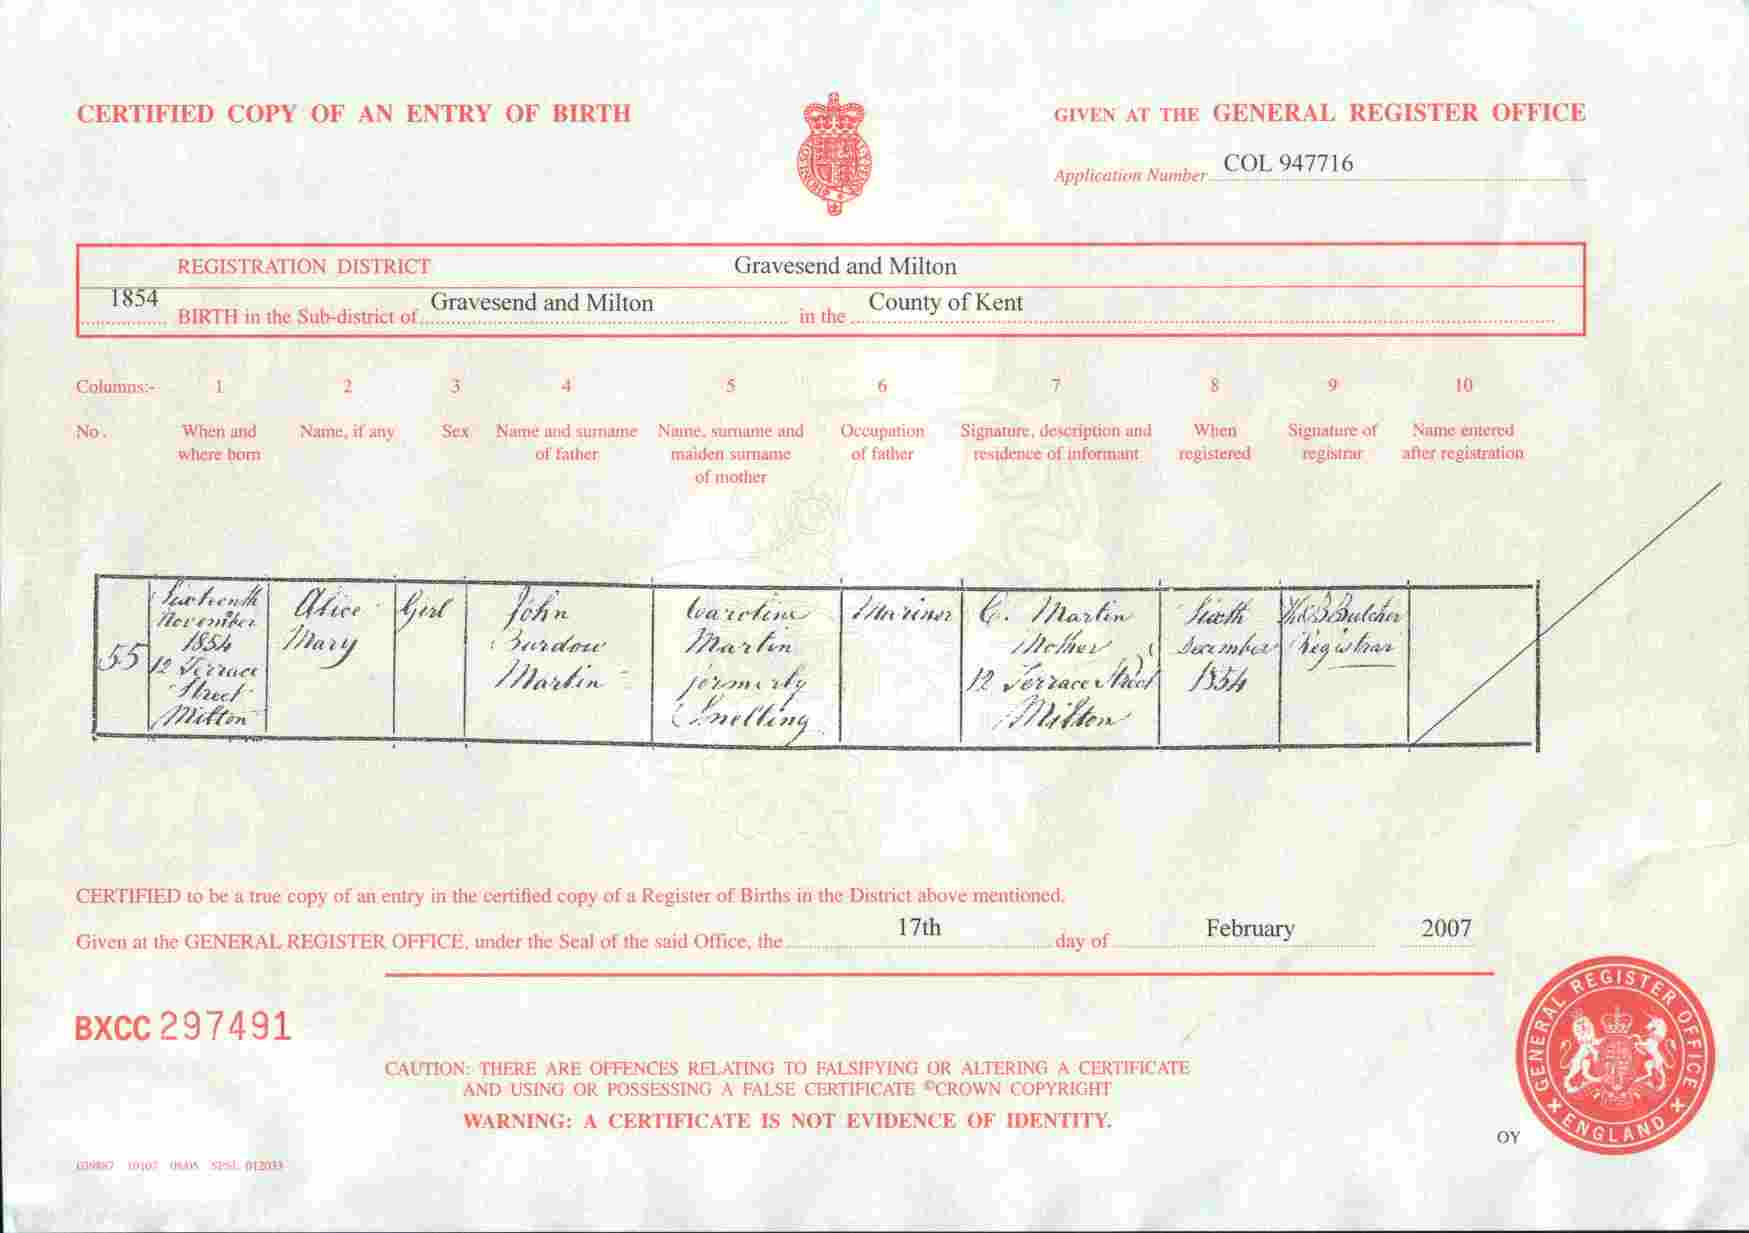 CERTIFIED COPY OF AN ENTRY OF BIRTH
GIVEN AT THE GENERAL REGISTER OFFICE
Application Number COL 947716
REGISTRATION DISTRICT Gravesend and Milton
1854 BIRTH in the Sub-district of Gravesend and Milton in the County of Kent
Columns:- 1 2 3 4 5 6 7 8 9 10
No. When and where born
Name, if any
Sex
Name and surname of father
Name, surname and maiden surname of mother
Occupation of father
Signature, description and residence of informant
When registered
Signature of registrar
Name entered after registration
55
Sixteenth
November
1854
12 Terrace
Street
Milton
Alice
Mary
Girl
John
Burdow
Martin
Caroline
Martin
formerly
Snelling
Mariner
C. Martin
Mother
12 Terrace Street
Milton
Sixth
December
1854
Butcher
Registrar
CERTIFIED to be a true copy of an entry in the certified copy of a Register of Births in the District above mentioned.
Given at the GENERAL REGISTER OFFICE, under the Seal of the said Office, the 17th day of February 2007
BXCC 297491
CAUTION: THERE ARE OFFENCES RELATING TO FALSIFYING OR ALTERING A CERTIFICATE
AND USING OR POSSESSING A FALSE CERTIFICATE ©CROWN COPYRIGHT
WARNING: A CERTIFICATE IS NOT EVIDENCE OF IDENTITY.
GENERAL REGISTER OFFICE
ENGLAND
OY
SPSL 012033